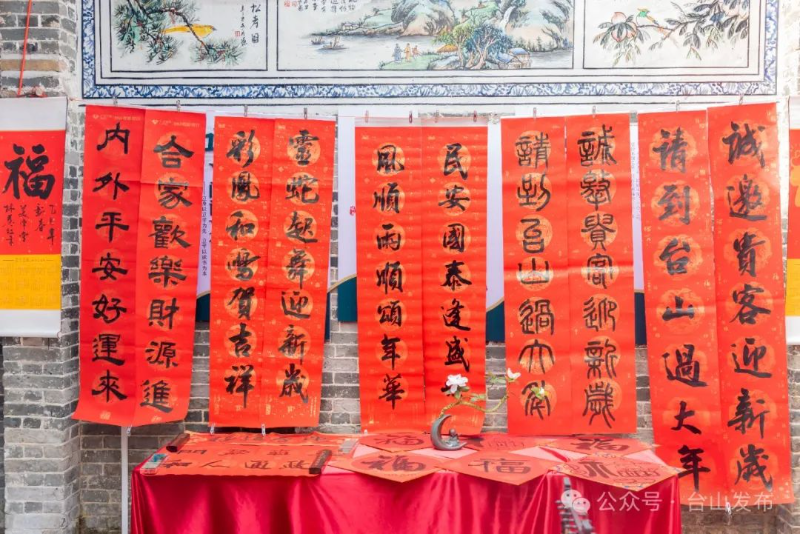 福
合家歡樂財源進
内外平安好運來
靈蛇起舞迎新歲
彩鳳和鳴賀吉祥
民安國泰逢盛
風順雨順頌年華
誠邀貴客迎新歲
請到台山過大年
誠邀貴客迎新歲
請到台山過大年
福
福
福
福
公众号 · 台山发布